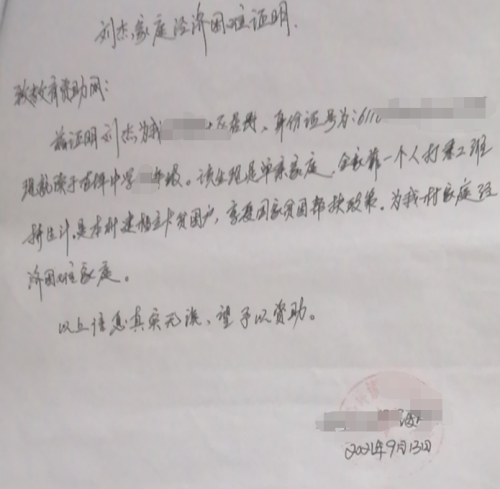 刘杰家庭经济困难证明.
致教育资助网:
兹证明刘杰为我 居民、身份证号为:6110
现就读于 中学 年级。该生现是单亲家庭,全家靠一个人打零工维
持生计,是本村建档立卡贫困户,享受国家贫困帮扶政策。为我村家庭经
济困难家庭。
以上信息真实无误、望予以资助。
2021年9月13日